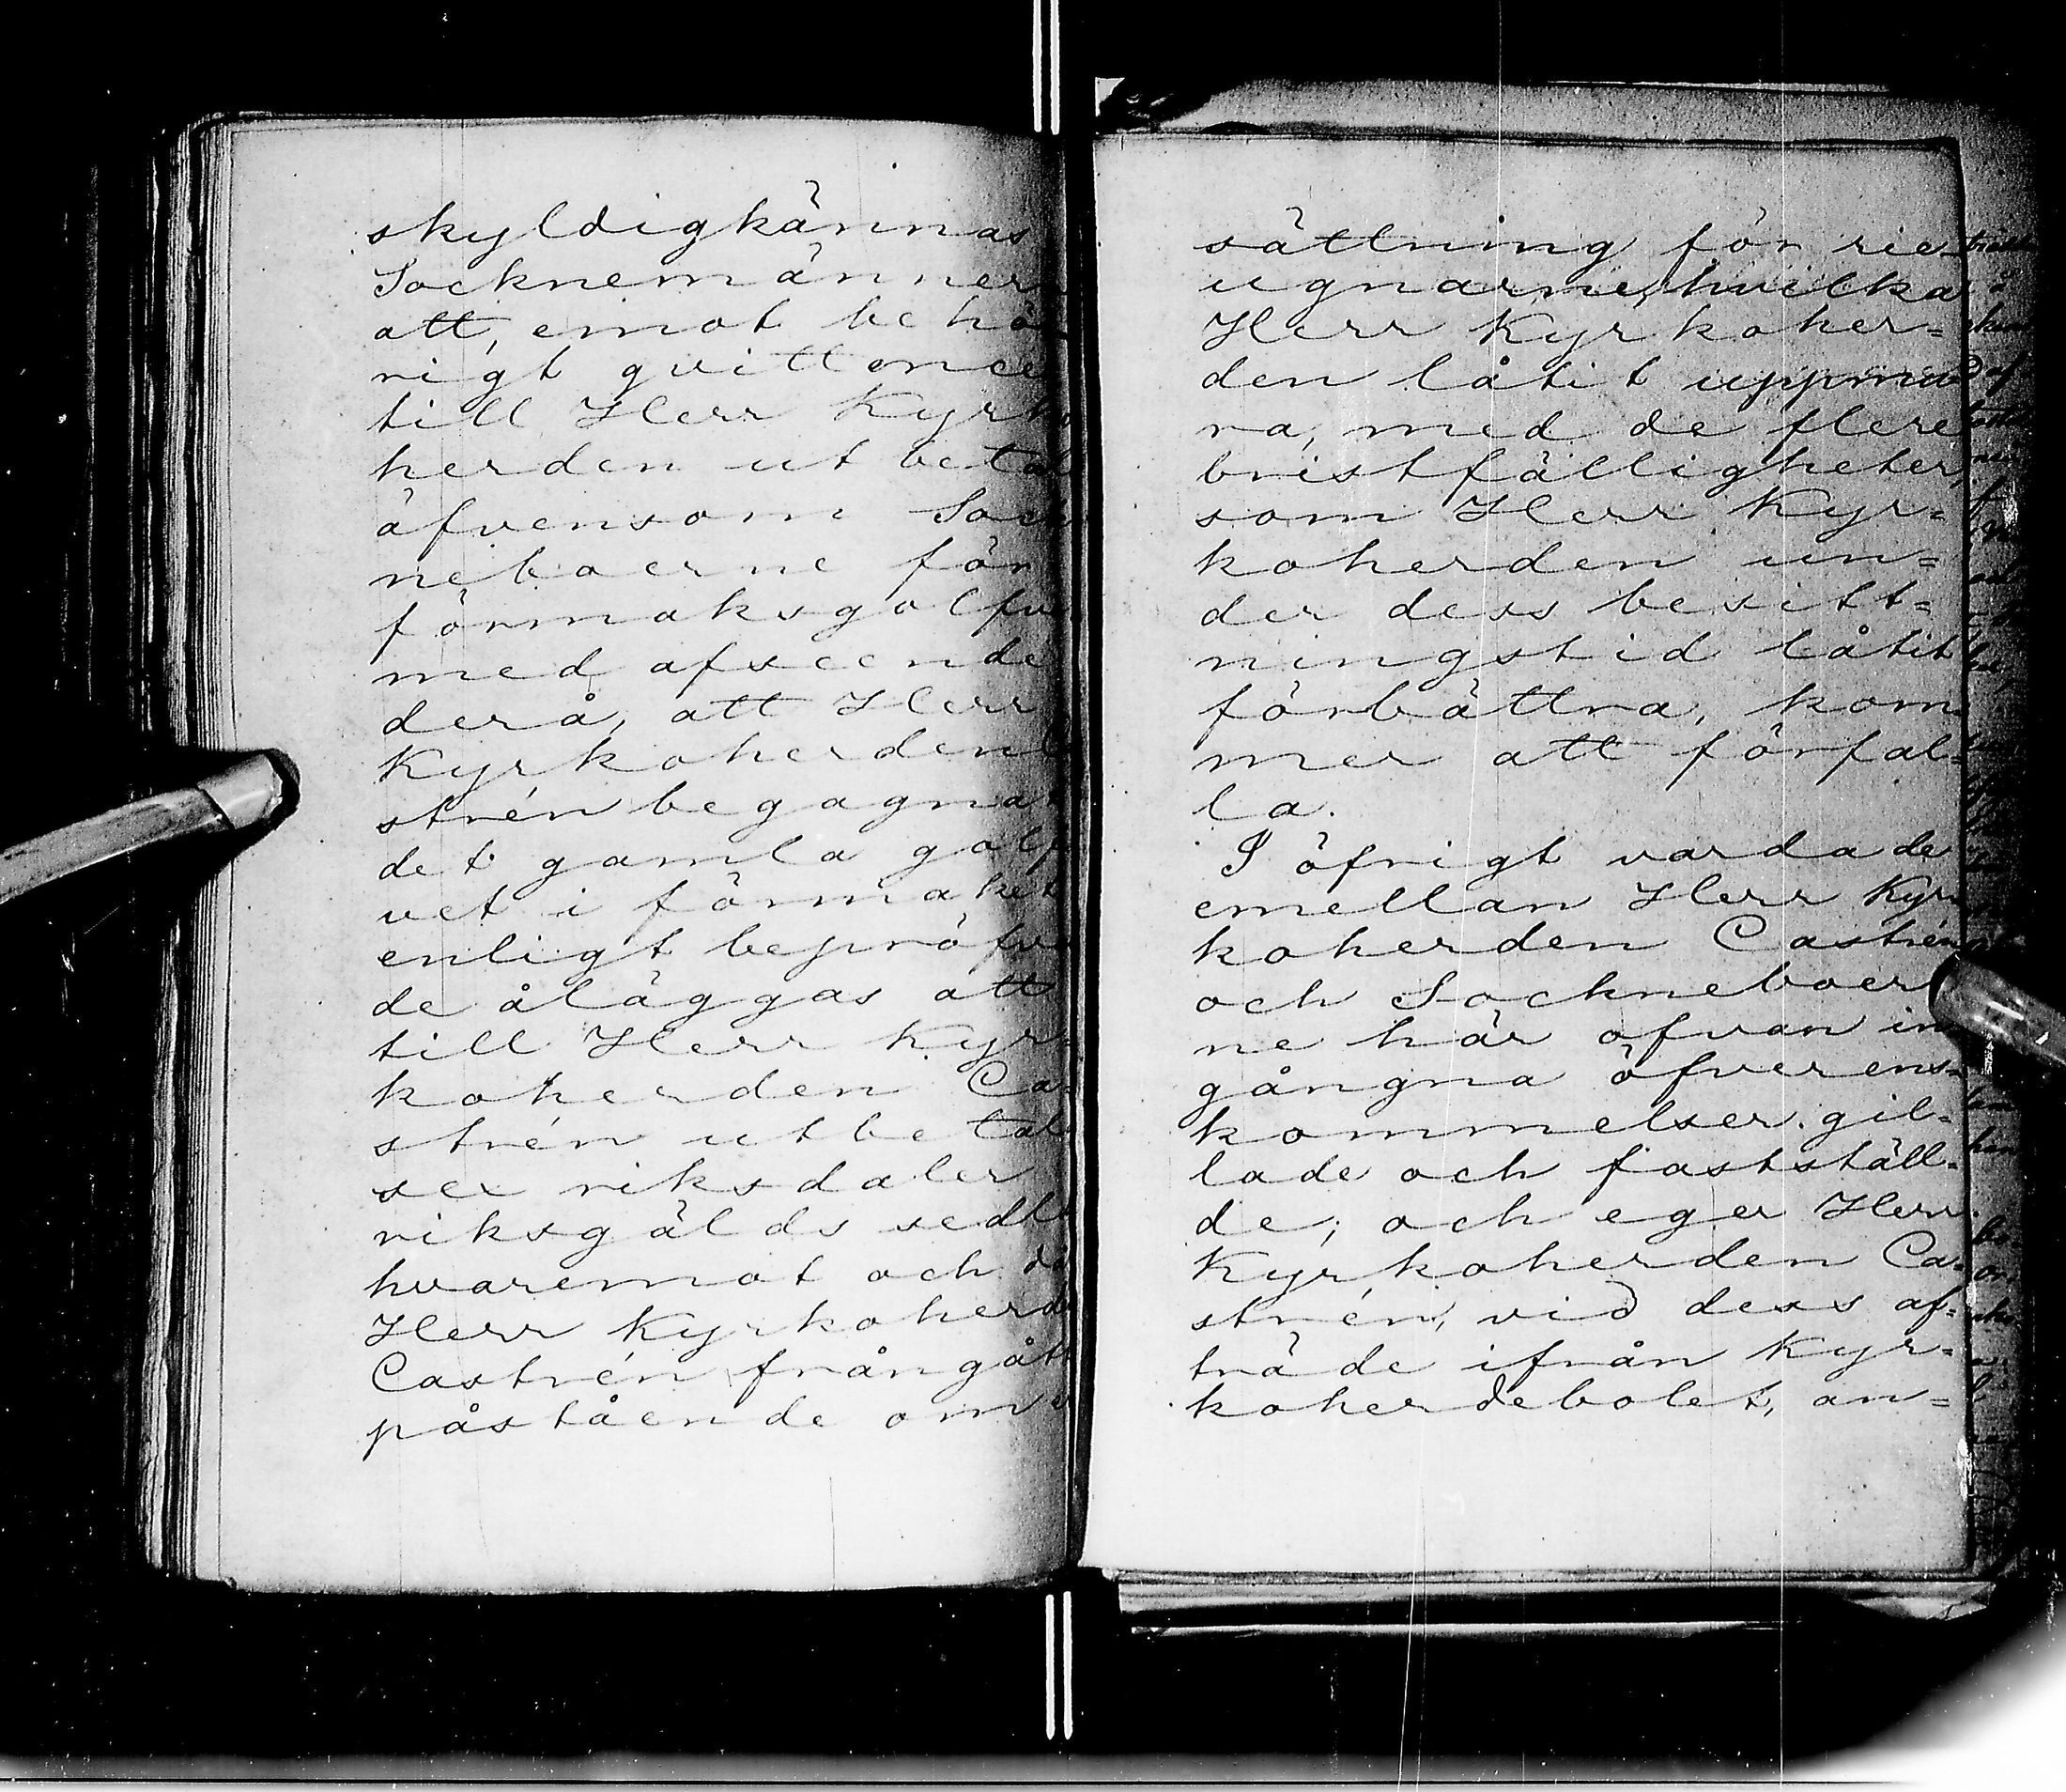 skyldigkännas
Socknemänner
att, emot behö
rigt qvittence
till Herr Kyrko
herden utbetal
äfvensom Sock
neboerne för
förmaksgolfve
med afseende
derå, att Herr
Kyrkoherden
strén begagnat
det gamla golf
vet i förmaket
enligt bepröfva
de åläggas att
till Herr Kyr-
koherden Ca-
strén utbetal
sex riksdaler
riksgälds sedl
hvaremot och då
Herr Kyrkoherde
Castrén frångått
påstående om
sättning för rie-
ugnarne, hvilka
Herr Kyrkoher=
den låtit uppmu
ra, med de flere
bristfälligheter,
som Herr Kyr=
koherden un=
der dess besitt=
ningstid låtit
förbättra, kom=
mer att förfal=
la.
I öfrigt varda de
emellan Herr Kyr=
koherden Castrén
och Sockneboer
ne här ofvan in
gångna öfverens=
kommelser gil=
lade och fastställ=
de; och eger Herr
Kyrkoherden Ca=
strén, vid dess af=
träde ifrån Kyr=
koherdebolet, an=